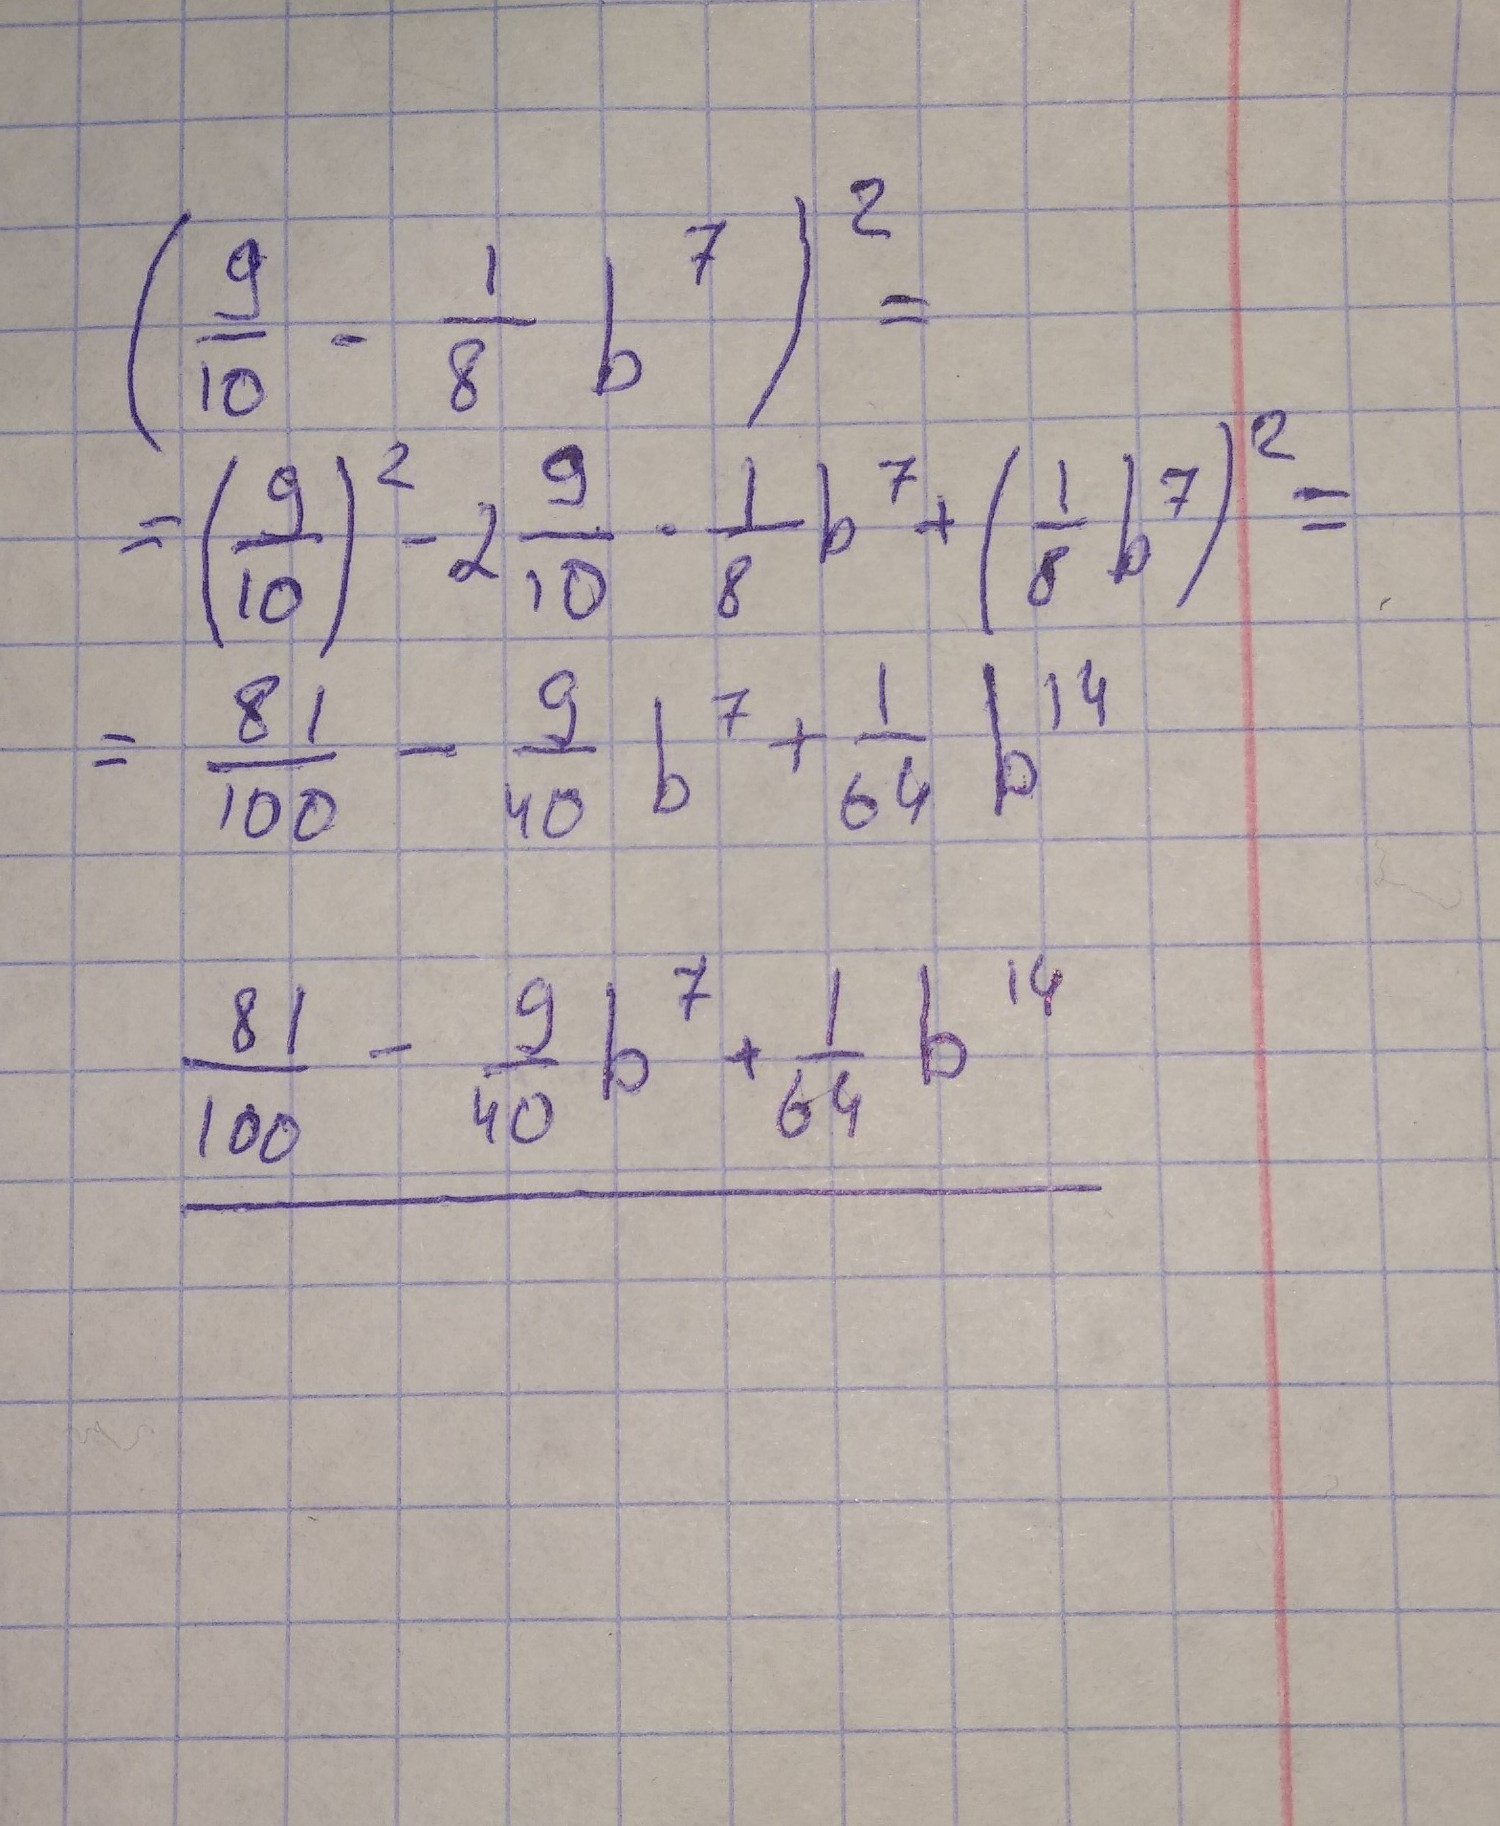 (9/10 - 1/8 b^7)^2 =
= (9/10)^2 - 2 9/10 · 1/8 b^7 + (1/8 b^7)^2 =
= 81/100 - 9/40 b^7 + 1/64 b^14
81/100 - 9/40 b^7 + 1/64 b^14